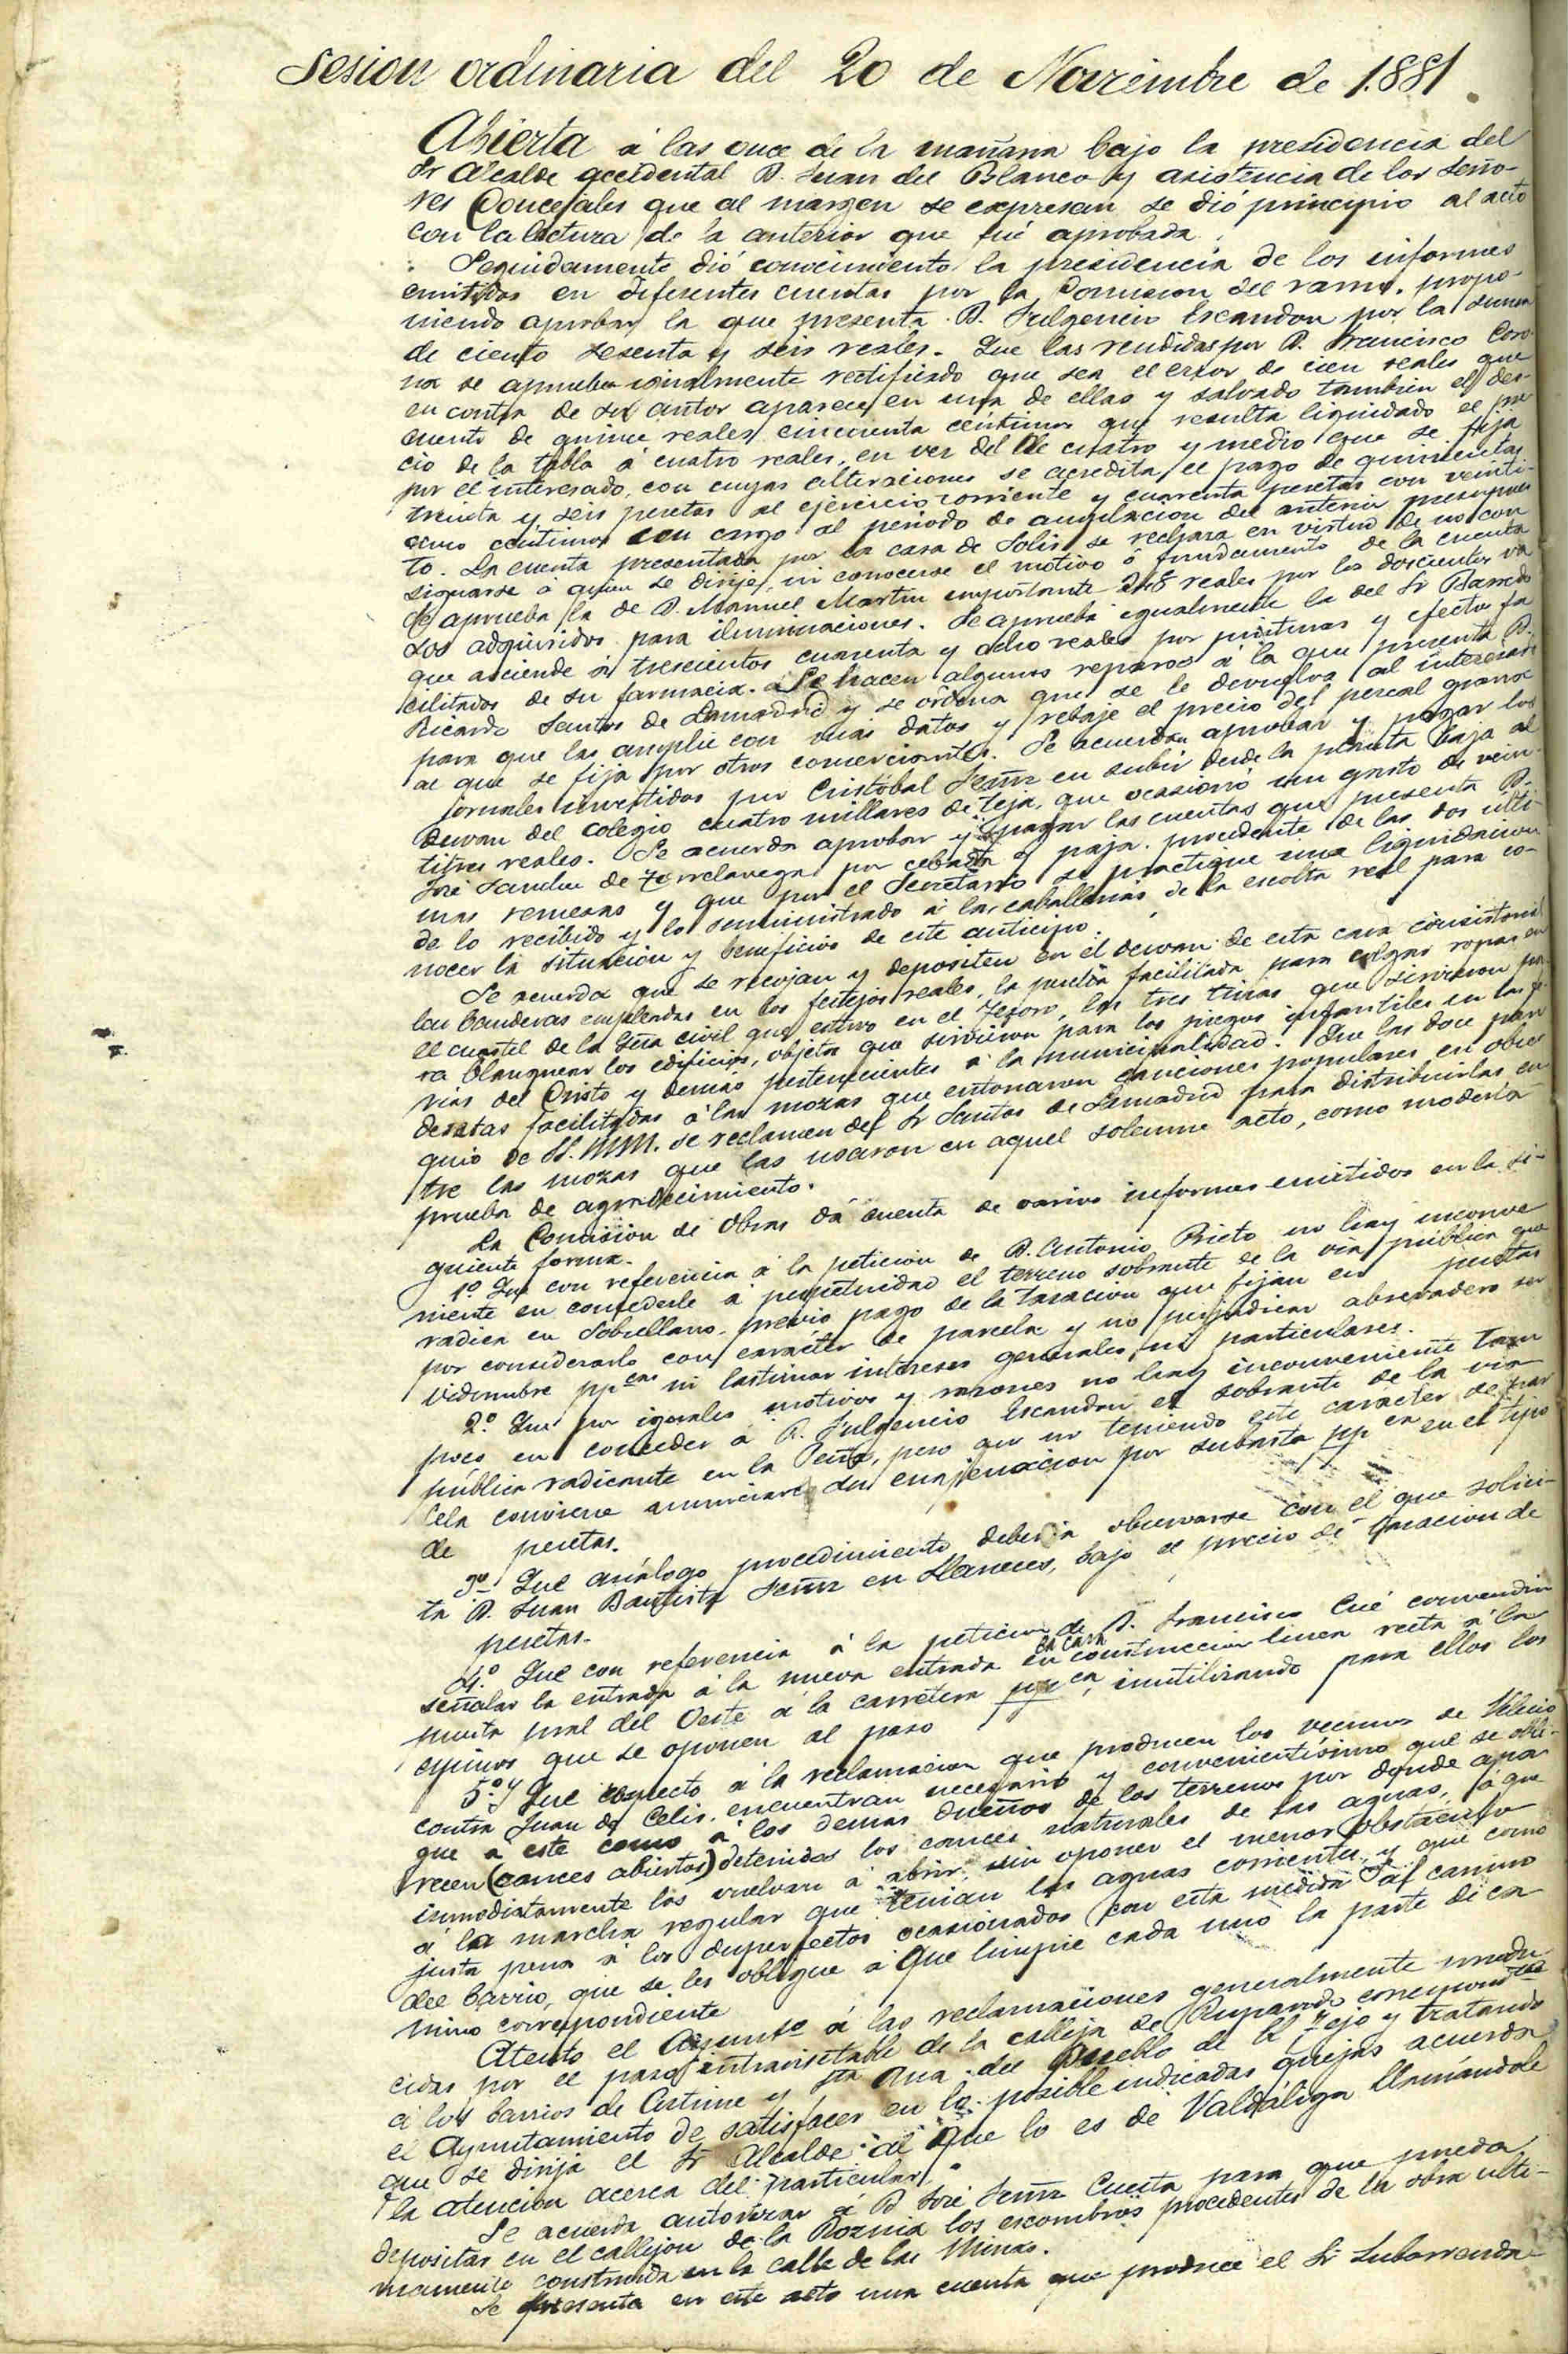 Sesion ordinaria del 20 de Noviembre de 1.881.
Abierta á las once de la mañana bajo la presidencia del
Sr Alcalde accidental D. Juan del Blanco y asistencia de los Seño-
res Concejales que al margen se expresan se dió principio al acto
con la lectura de la anterior que fué aprobada.
Seguidamente dió conocimiento la presidencia de los informes
emitidos en diferentes cuentas por la Comision del ramo, propo-
niendo aprobar la que presenta D. Fulgencio Escandon por la suma
de ciento sesenta y seis reales. Que las rendidas por D. Francisco Coro-
na se aprueben igualmente rectificado que sea el error de cien reales que
en contra de su autor aparece en una de ellas y salvado tambien el des-
cuento de quince reales cincuenta céntimos que resulta liquidado el pre
cio de la tabla á cuatro reales, en vez del de cuatro y medio que se fija
por el interesado, con cuyas alteraciones se acredita el pago de quinientas
treinta y seis pesetas al ejercicio corriente y cuarenta pesetas con veinti-
cinco centimos con cargo al periodo de ampliacion del anterior presupues
to. La cuenta presentada por la casa de Solis se rechaza en virtud de no con
signarse á quien se dirije, ni conocerse el motivo ó fundamento de la cuenta
Se aprueba la de D. Manuel Martin importante 248 reales por los doscientos va
sos adquiridos para iluminaciones. Se aprueba igualmente la del Sr Barreda
que asciende á trescientos cuarenta y ocho reales por pinturas y efectos fa
cilitados de su farmacia. Se hacen algunos reparos á la que presenta D.
Ricardo Santos de Lamadrid y se ordena que se le devuelva al interesado
para que las amplie con mas datos y rebaje el precio del percal grana
al que se fija por otros comerciantes. Se acuerdan aprobar y pagar los
jornales invertidos por Cristóbal Fernz en subir desde la planta baja al
desvan del colegio cuatro millares de teja, que ocasionó un gasto de vein-
titres reales. Se acuerda aprobar y pagar las cuentas que presenta D.
José Sanchez de Torrelavega por cebada y paja procedente de las dos ulti-
mas remesas y que por el Secretario se practique una liquidacion
de lo recibido y lo suministrado á las caballerias de la escolta real para co-
nocer la situacion y beneficios de este anticipo.
Se acuerda que se recojan y depositen en el desvan de esta casa consistorial
las banderas empleadas en los festejos reales, la facilitada para colgar ropas en
el cuartel de la Gria civil que estuvo en el Tesoro, las tres tinas que sirvieron pa
ra blanquear los edificios, objetos que sirvieron para los juegos infantiles en las
rias del Cristo y demas pertenecientes á la municipalidad. Que las doce pan
deretas facilitadas á las mozas que entonaron canciones populares en obse
quio de SS. MM. se reclamen del Sr Santos de Lamadrid para distribuirlas en
tre las mozas que las usaron en aquel solemne acto, como modesta
prueba de agradecimiento.
La Comision de Obras dá cuenta de varios informes emitidos en la si-
guiente forma.
1.º Que con referencia á la peticion de D. Antonio Prieto no hay inconve
niente en concederle á perpetuidad el terreno sobrante de la via pública que
radica en Sobrellano, previo pago de la tasacion que fijan en pesetas
por considerarlo con carácter de parcela y no perjudicar abrevadero ser
vidumbre ppcas ni lastimar intereses generales, ni particulares.
2.º Que por iguales motivos y razones no hay inconveniente tam
poco en conceder á D. Fulgencio Escandon el sobrante de la via
pública radicante en la Peña, pero que no teniendo este caracter de par
cela conviene anunciar su enajenacion por subasta ppca en el tipo
de pesetas.
3º Que análogo procedimiento deberia observarse con el que solici-
ta D. Juan Bautista Fernz en Llaneces, bajo el precio de tasacion de
pesetas.
4.º Que con referencia á la peticion de D. Francisco Cué convendria
señalar la entrada á la nueva entrada en la casa construccion linea recta á la
puerta pral del Oeste á la carretera ppca, inutilizando para ellos los
espinos que se oponen al paso
5.º y Que respecto á la reclamacion que producen los vecinos de Velecio
contra Juan de Celis, encuentran necesario y convenientísimo que se obli-
gue a este como á los demas dueños de los terrenos por donde apa
recen (cauces abiertos) detenidos los cauces naturales de las aguas, á que
inmediatamente los vuelvan á abrir, sin oponer el menor obstaculo
á la marcha regular que tenian las aguas corrientes, y que como
justa pena á los desperfectos ocasionados con esta medida al camino
del barrio, que se les obligue á que limpie cada uno la parte de ca
mino correspondiente
Atento el Ayunto á las reclamaciones generalmente produ-
cidas por el paso intransitable de la calleja de Ruparedo correspondte
á los barrios de Castrine y Sta Ana del Pueblo de El Tejo y tratando
el Ayuntamiento de satisfacer en lo posible indicadas quejas acuerda
que se dirija el Sr Alcalde al que lo es de Valdáliga llamándole
la atencion acerca del particular.
Se acuerda autorizar á D José Fernz Cuesta para que pueda
depositar en el callejon de la Roznia los escombros procedentes de la obra ulti-
mamente construida en la calle de las Minas.
Se presenta en este acto una cuenta que produce el Sr Subarrenda-